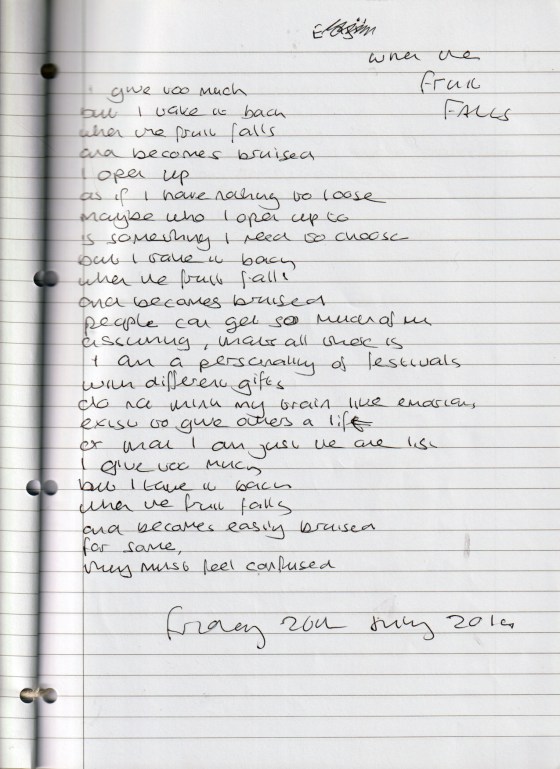 when the
fruit
FALLS
i give too much
but I take it back
when the fruit falls
and becomes bruised
I open up
as if I have nothing to loose
maybe who I open up to
is something I need to choose
but I take it back
when the fruit falls
and becomes bruised
people can get so much of me
assuming, that's all there is
I am a personality of festivals
with different gifts
do not think my brain like emotions
exist to give others a lift
or that I am just the one list
I give too much
but I take it back
when the fruit falls
and becomes easily bruised
for some,
they must feel confused
Friday 20th July